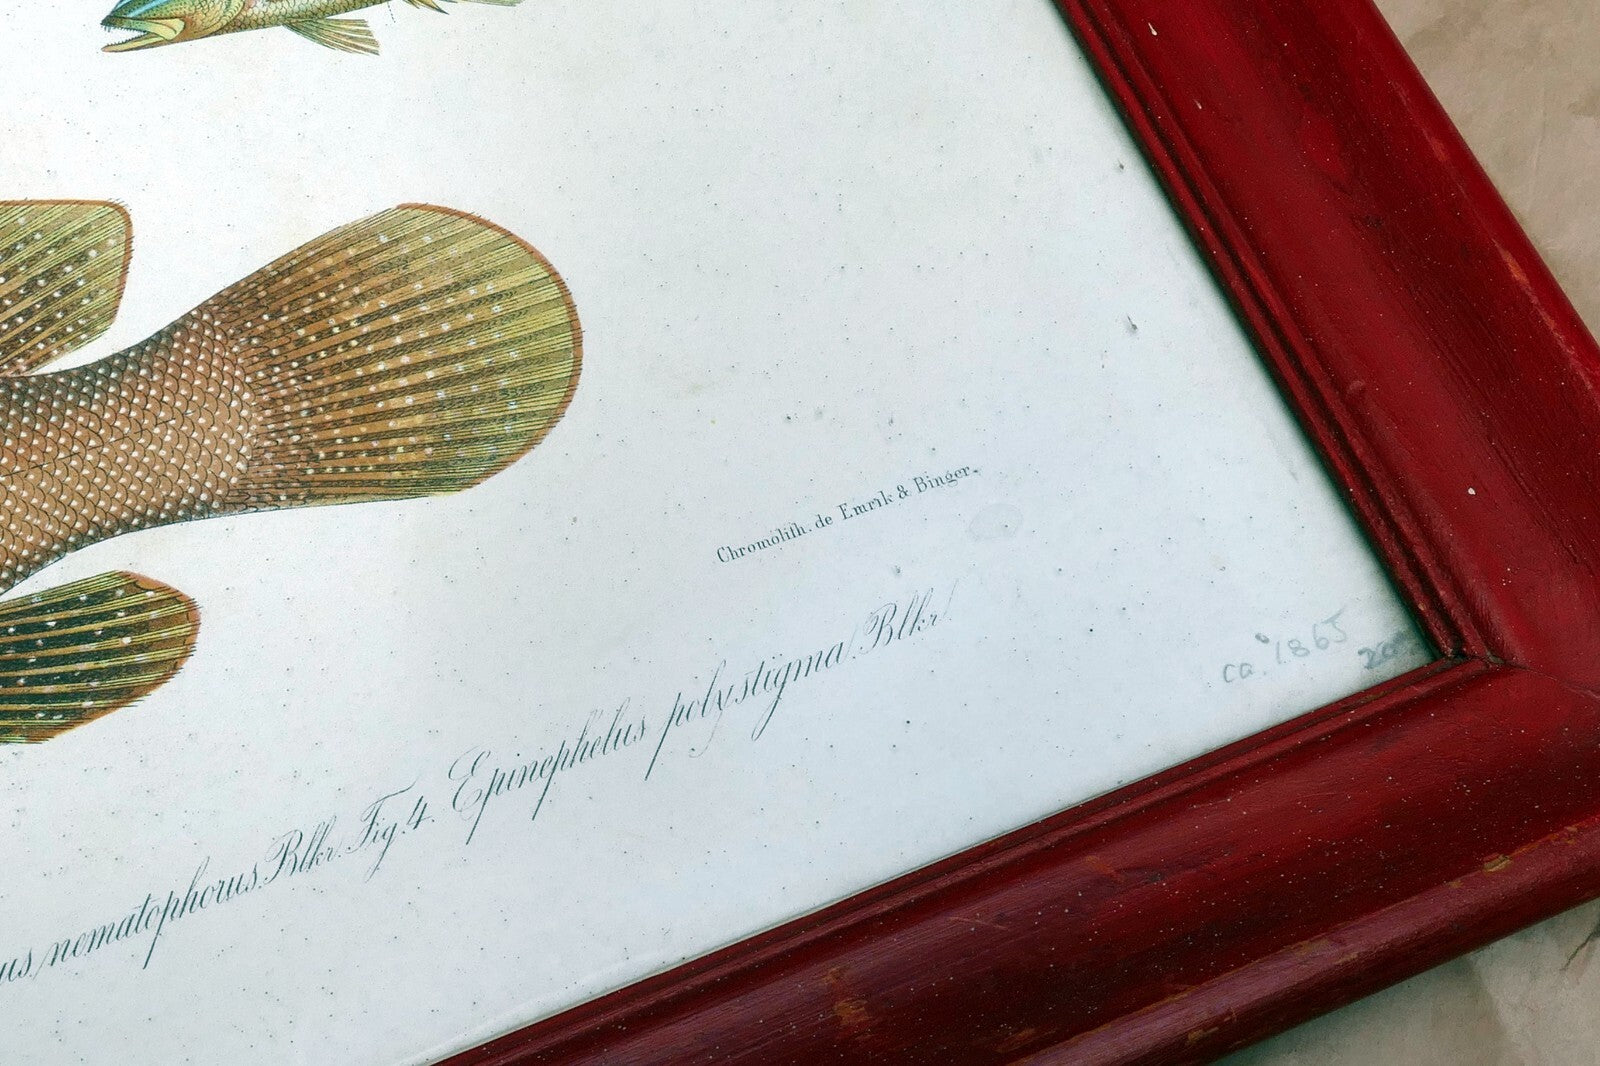 Chromolith. de Emrik & Binger.
us nematophorus Blkr. Fig. 4. Epinephelus polystigma Blkr.
ca. 1865